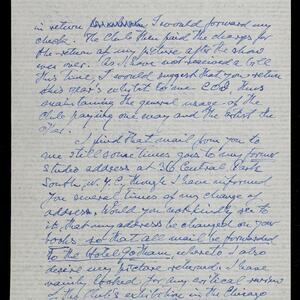 in return I would forward my
check. The Club then paid the charges for
the return of my picture after the show
was over. As I have not received a bill
this time, I would suggest that you return
this year's exhibit to me C.O.D., thus
maintaining the general usage of the
Club paying one way and the artist the
other.
I find that mail from you to
me still sometimes goes to my former
studio address at 36 Central Park
South, N.Y.C., though I have informed
you several times of my change of
address. Would you not kindly see to
it, that my address be changed on your
books, so that all mail be forwarded
to the Hotel Gotham, where to I also
desire my picture returned. I have
vainly looked for any critical review
of the Club's exhibition in the Chicago